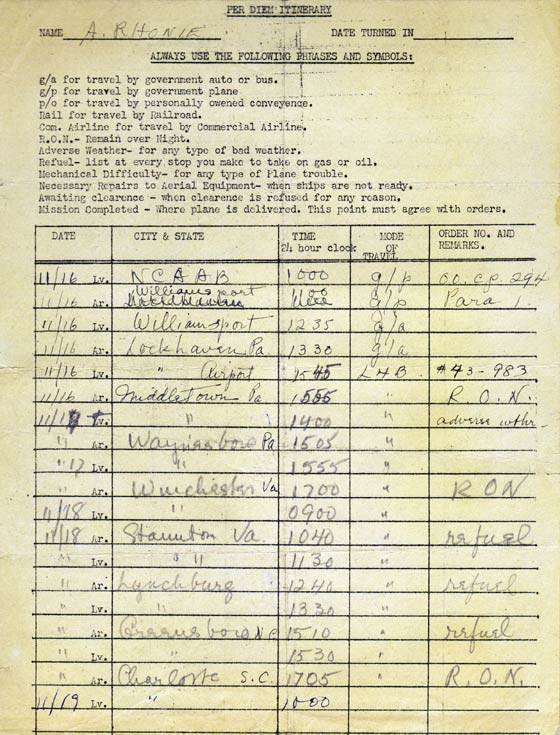 PER DIEM ITINERARY
NAME A. RHONIE DATE TURNED IN
ALWAYS USE THE FOLLOWING PHRASES AND SYMBOLS:
g/a for travel by government auto or bus.
g/p for travel by government plane
p/o for travel by personally owened conveyence.
Rail for travel by Railroad.
Com. Airline for travel by Commercial Airline.
R.O.N.- Remain over Night.
Adverse Weather- for any type of bad weather.
Refuel- list at every stop you make to take on gas or oil.
Mechanical Difficulty- for any type of Plane trouble.
Necessary Repairs to Aerial Equipment- when ships are not ready.
Awaiting clearence - when clearence is refused for any reason.
Mission Completed - Where plane is delivered. This point must agree with orders.
DATE CITY & STATE TIME 24 hour clock MODE OF TRAVEL ORDER NO. AND REMARKS.
11/16 Lv. NCAAB 1000 g/p oo. cp. 294
11/16 Ar. Williamsport g/p Para 1.
11/16 Lv. Williamsport 1235 g/a
11/16 Ar. Lockhaven Pa. 1330 g/a
11/16 Lv. " Airport 1545 L4B #43-983
11/16 Ar. Middletown Pa. 1555 " R.O.N.
11/17 Lv. " 1400 " adverse wthr-
" Ar. Waynesboro Pa 1505 "
"17 Lv. " 1555 "
" Ar. Winchester Va 1700 " RON
11/18 Lv. " 0900 "
11/18 Ar. Staunton Va. 1040 " refuel
" Lv. " " 1130 "
" Ar. Lynchburg 1240 " refuel
" Lv. " 1330 "
" Ar. Greensboro N C 1510 " refuel
" Lv. " 1530 "
" Ar. Charlotte S.C. 1705 " R.O.N.
11/19 Lv. " 1000